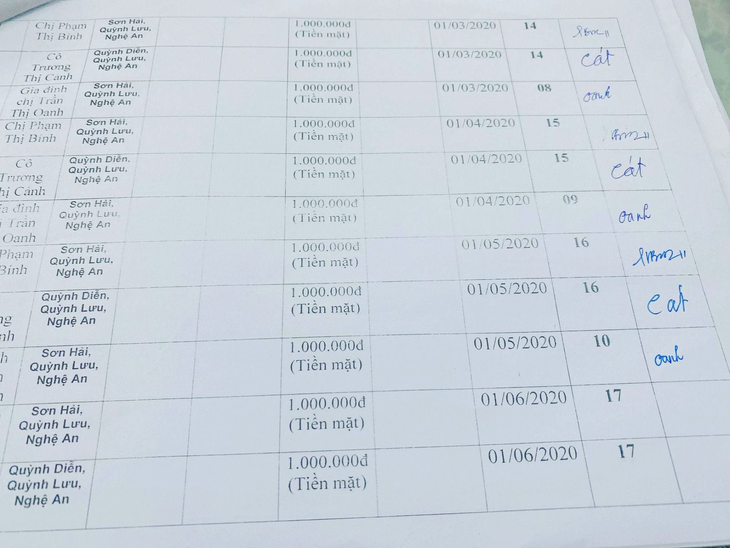 Chị Phạm Thị Bình
Sơn Hải, Quỳnh Lưu, Nghệ An
1.000.000đ (Tiền mặt)
01/03/2020
14
Cô Trương Thị Cảnh
Quỳnh Diễn, Quỳnh Lưu, Nghệ An
1.000.000đ (Tiền mặt)
01/03/2020
14
Cát
Gia đình chị Trần Thị Oanh
Sơn Hải, Quỳnh Lưu, Nghệ An
1.000.000đ (Tiền mặt)
01/03/2020
08
oanh
Chị Phạm Thị Bình
Sơn Hải, Quỳnh Lưu, Nghệ An
1.000.000đ (Tiền mặt)
01/04/2020
15
Cô Trương Thị Cảnh
Quỳnh Diễn, Quỳnh Lưu, Nghệ An
1.000.000đ (Tiền mặt)
01/04/2020
15
Cát
đình Trần Oanh
Sơn Hải, Quỳnh Lưu, Nghệ An
1.000.000đ (Tiền mặt)
01/04/2020
09
oanh
Phạm Bình
Sơn Hải, Quỳnh Lưu, Nghệ An
1.000.000đ (Tiền mặt)
01/05/2020
16
Quỳnh Diễn, Quỳnh Lưu, Nghệ An
1.000.000đ (Tiền mặt)
01/05/2020
16
Cát
Sơn Hải, Quỳnh Lưu, Nghệ An
1.000.000đ (Tiền mặt)
01/05/2020
10
oanh
Sơn Hải, Quỳnh Lưu, Nghệ An
1.000.000đ (Tiền mặt)
01/06/2020
17
Quỳnh Diễn, Quỳnh Lưu, Nghệ An
1.000.000đ (Tiền mặt)
01/06/2020
17